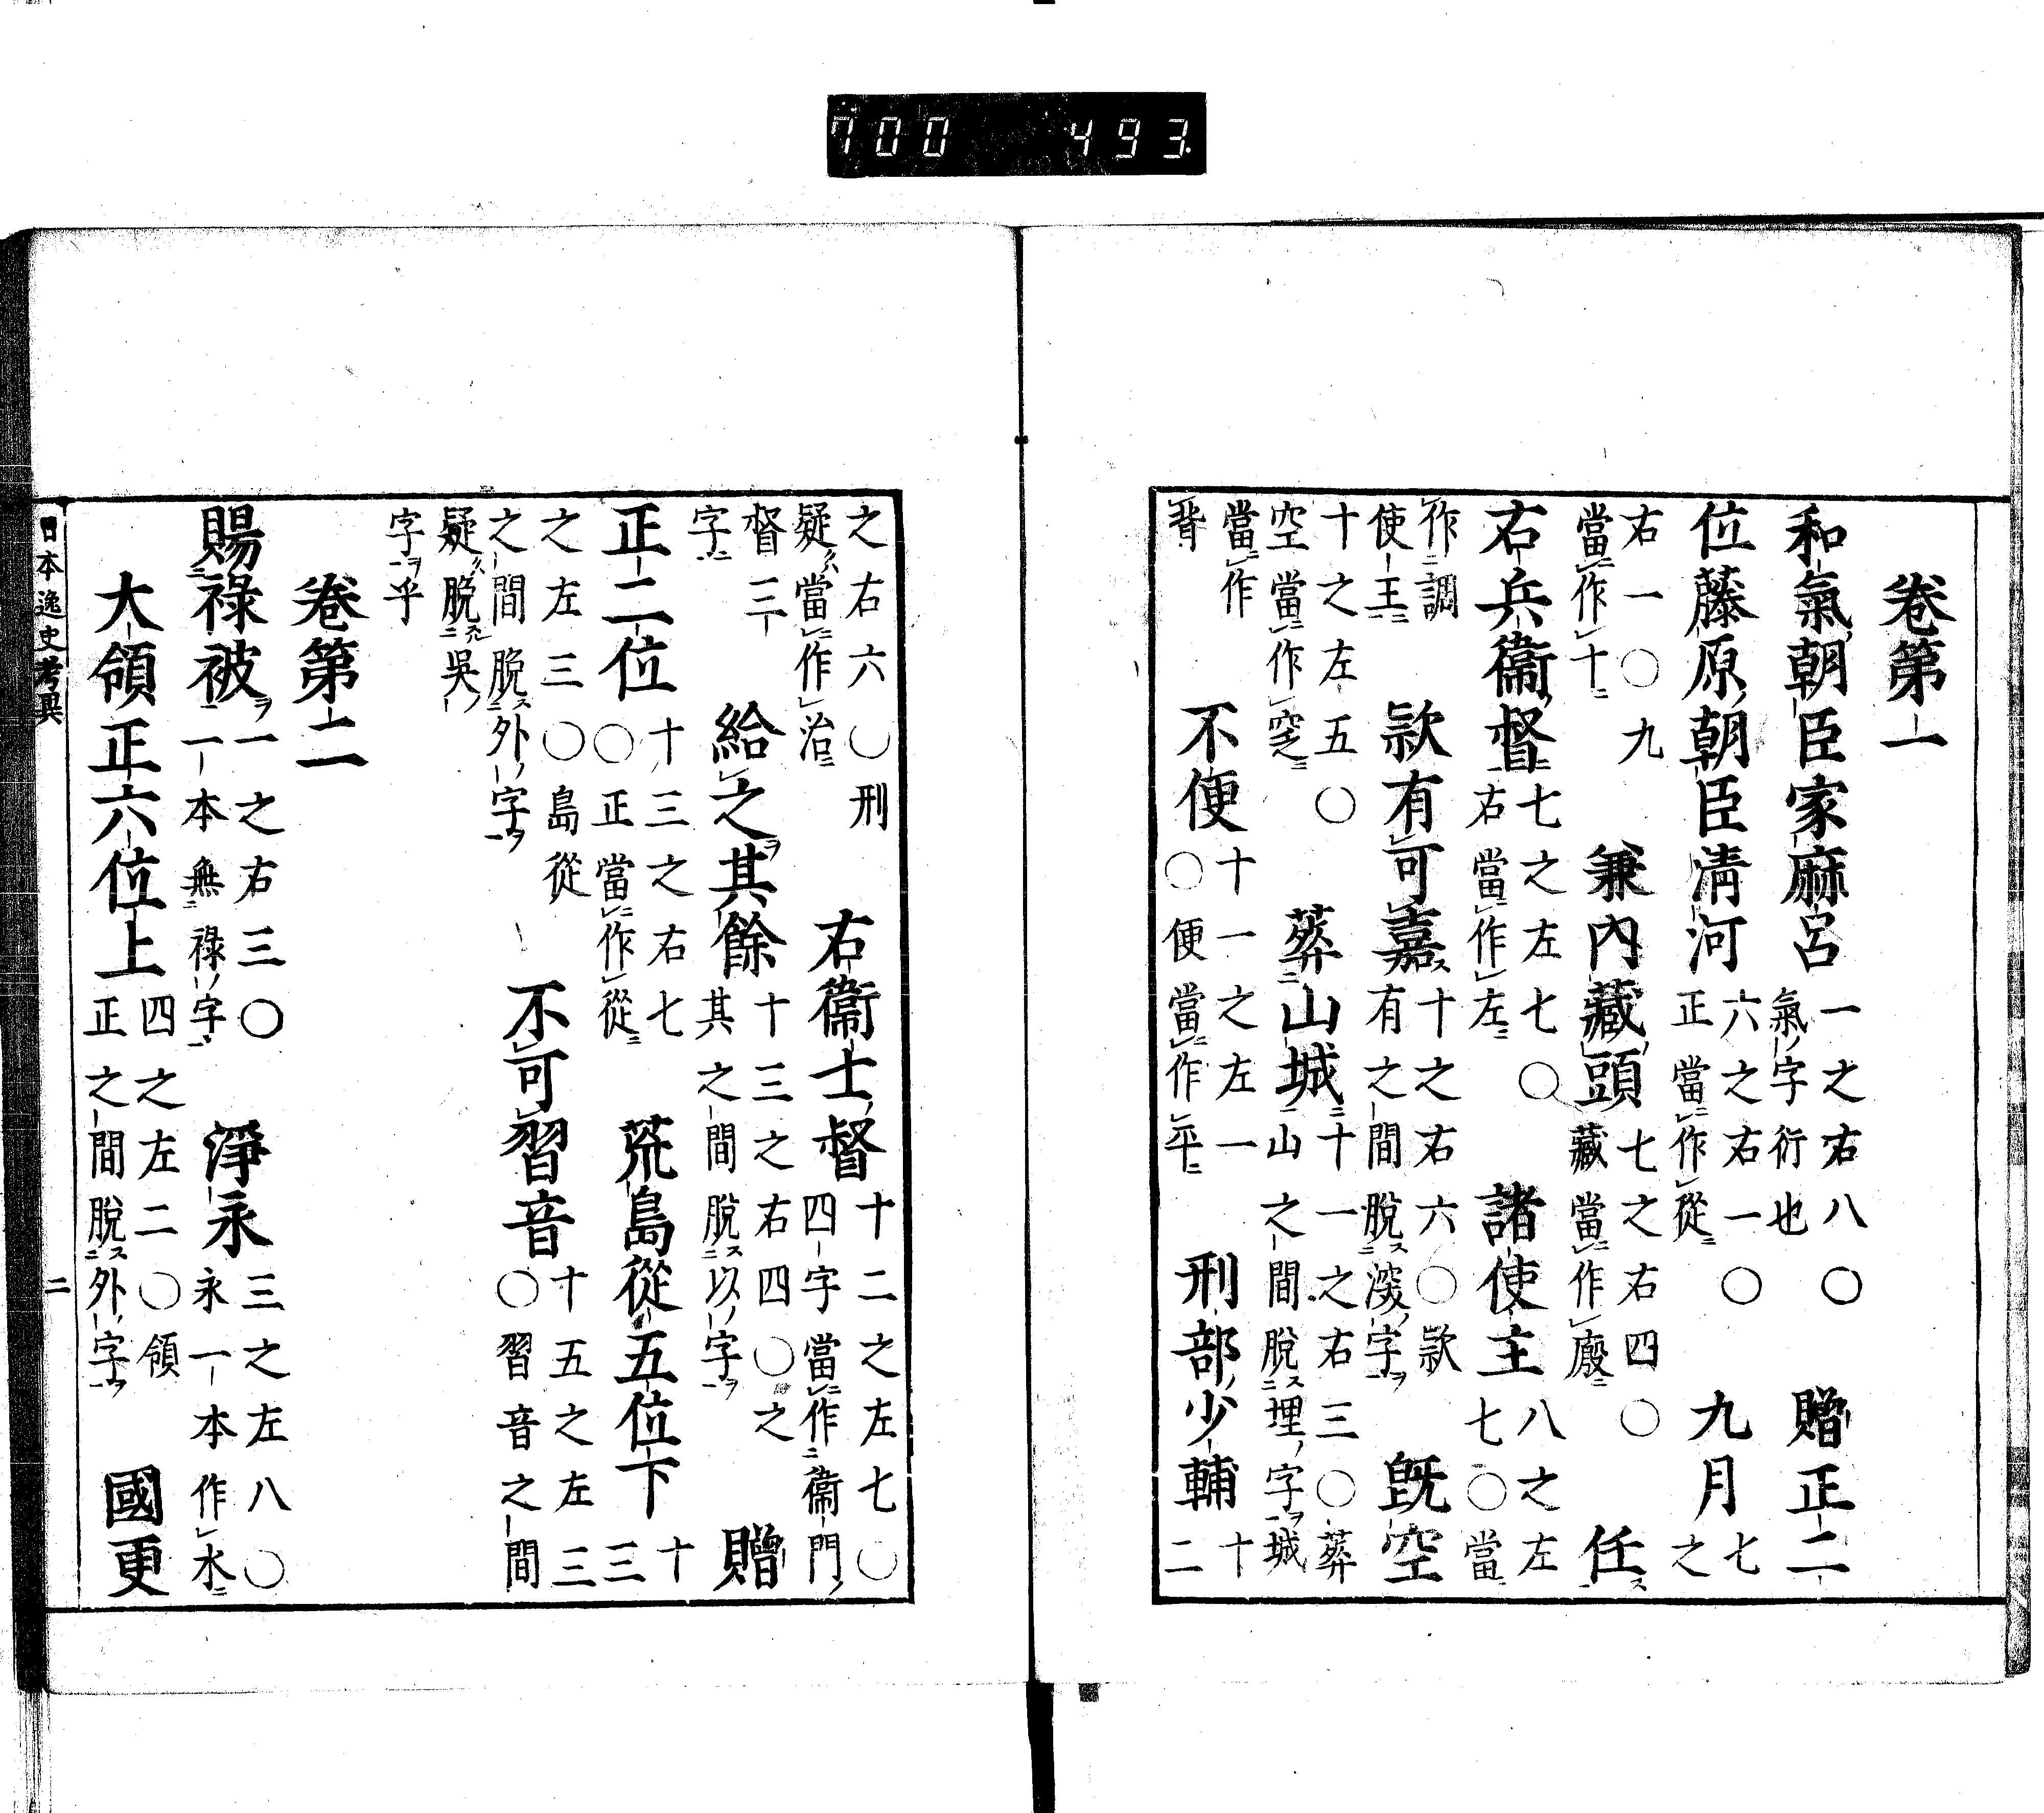 700 493
卷第一
和氣朝臣家麻呂 一之右八〇 氣字衍也 贈正二
位藤原朝臣清河 六之右一〇 正當作從 九月 七 之
右一〇九 當作十 兼內藏頭 七之右四〇 藏當作廄 任
右兵衞督 七之左七〇 右當作左 諸使主 八之左 七〇當
作調 使王 款有可嘉 十之右六〇款 有之間脫深字 既空
十之左五〇 空當作窆 葬山城 十一之右三〇葬 山之間脫埋字城
當作 背 不便 十一之左一 〇便當作平 刑部少輔 十 二
之右六〇刑 疑當作治 右衞士督 十二之左七〇 四字當作衞門
督三 字 給之其餘 十三之右四〇之 其之間脫以字 贈
正二位 十三之右七 〇正當作從 荒島從五位下 十 三
之左三〇島從 之間脫外字 不可習音 十五之左三 〇習音之間
疑脫吳 字乎
卷第二
賜祿被 一之右三〇 一本無祿字 淨永 三之左八〇 永一本作水
大領正六位上 四之左二〇領 正之間脫外字 國更
日本逸史考異 二